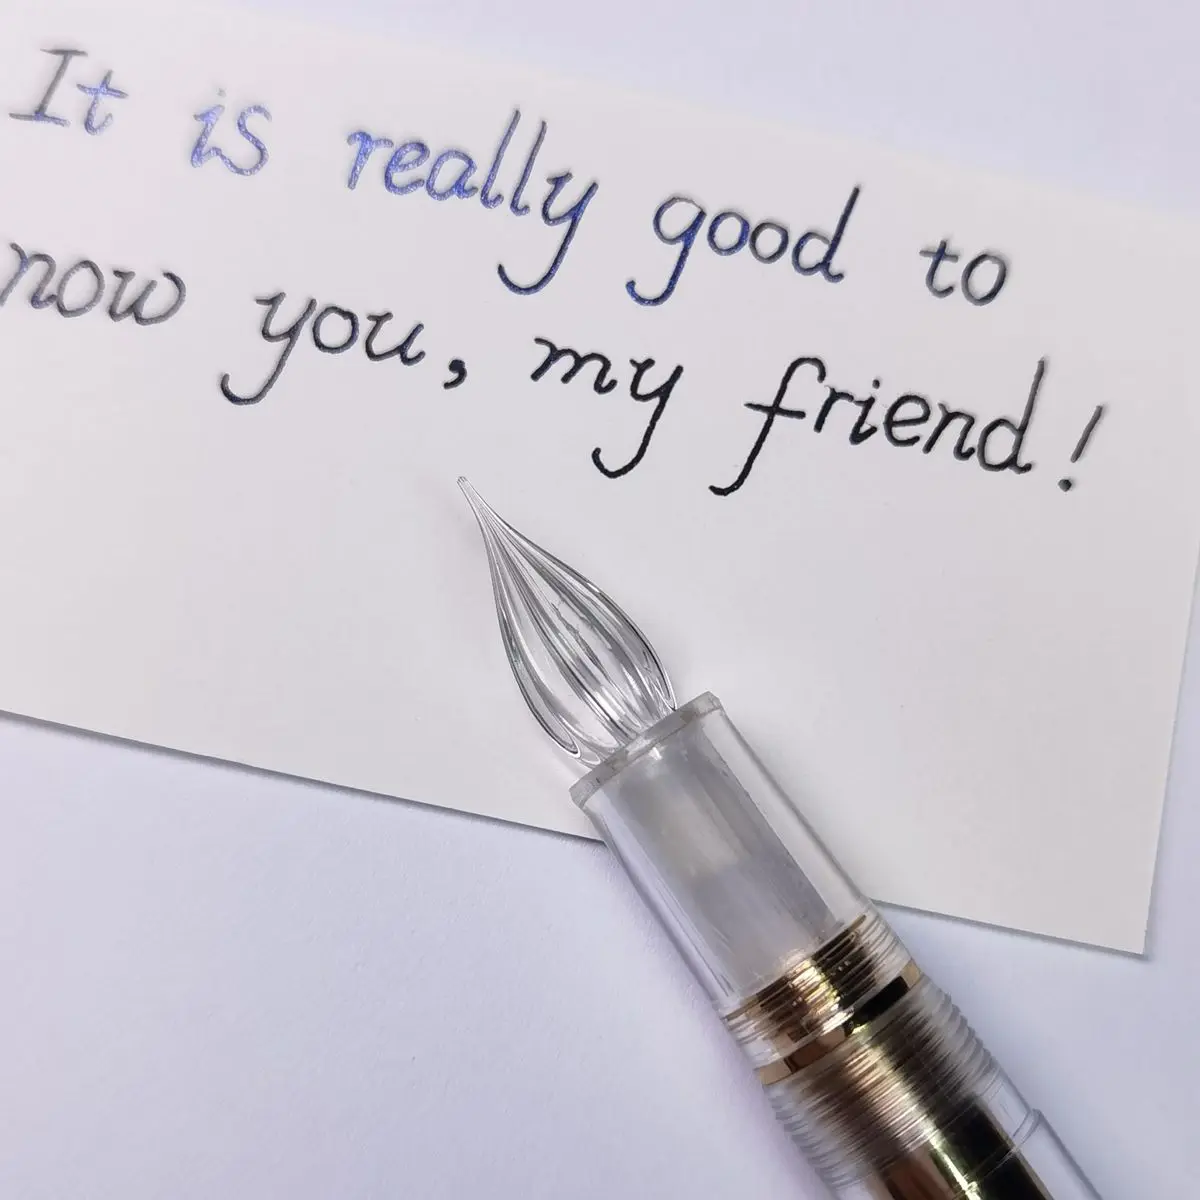 It is really good to
now you, my friend!